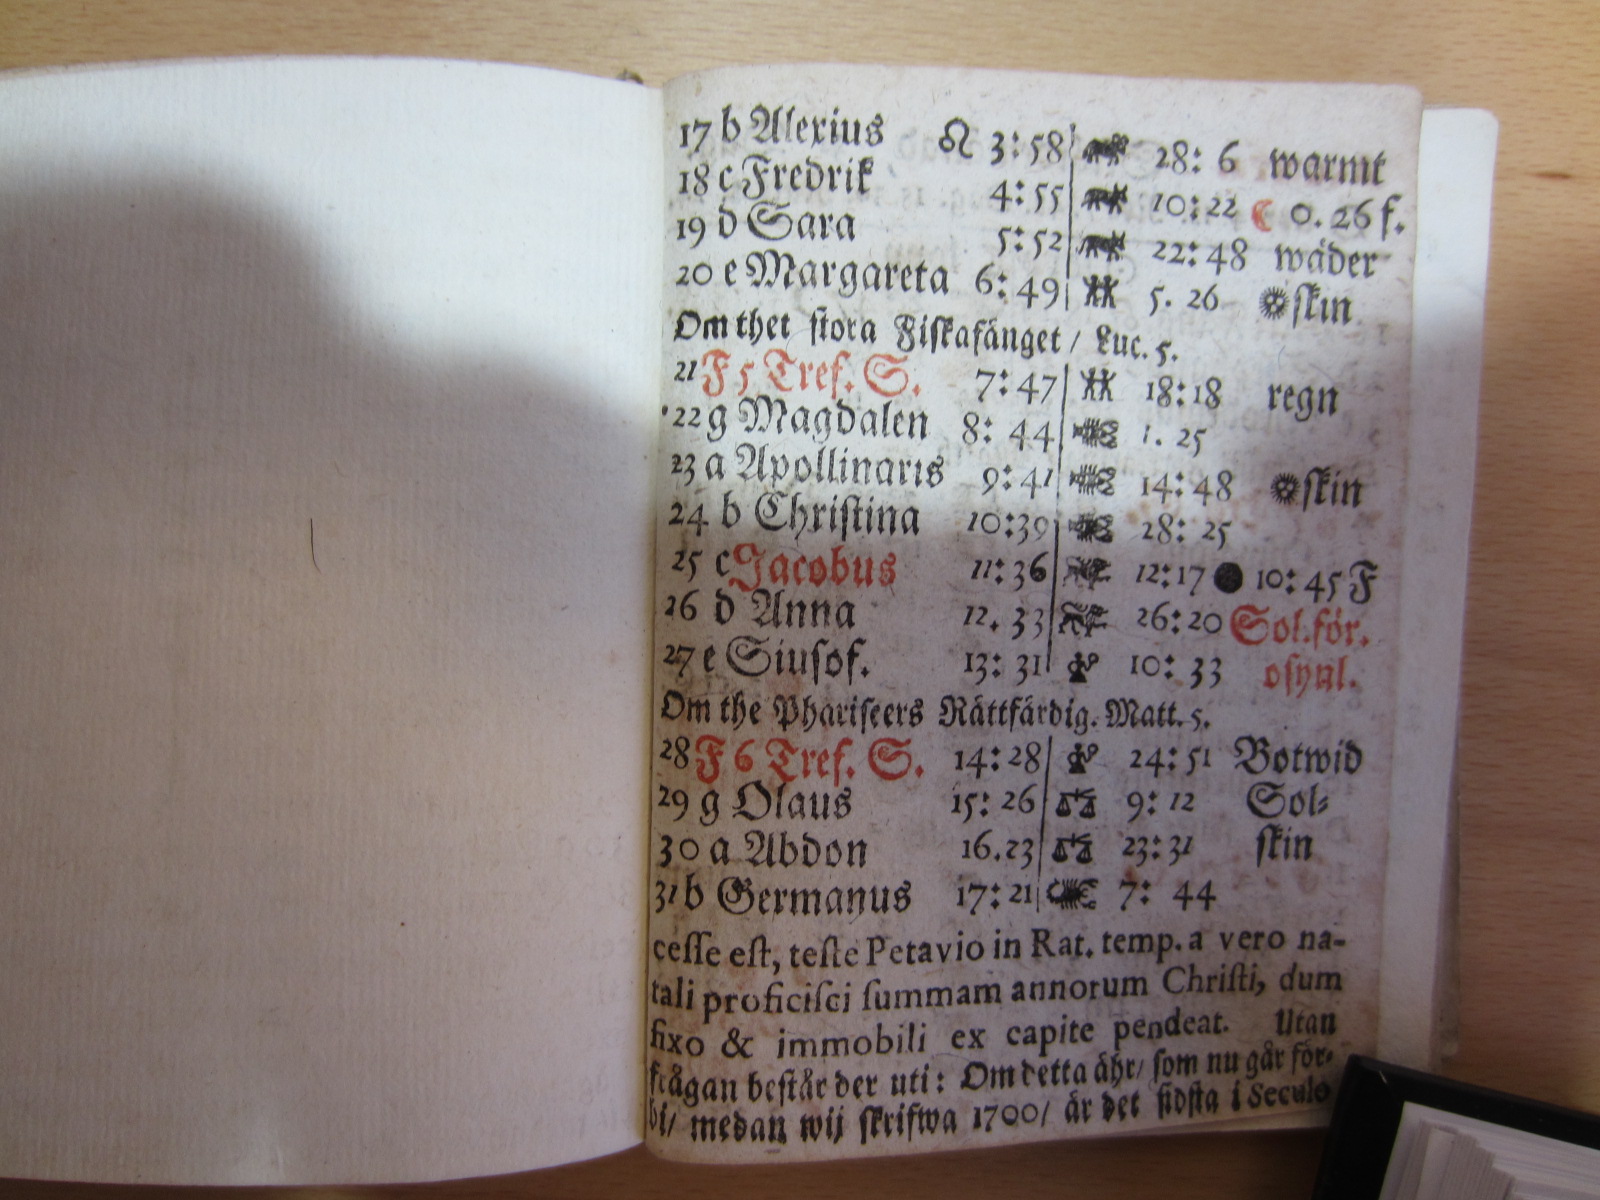 17 b Alexius ♌ 3:58 28: 6 warmt
18 c Fredrik 4:55 10:22 ☾ 0. 26 f.
19 d Sara 5:52 22:48 wäder
20 e Margareta 6:49 5. 26 ☀ſkin
Om thet ſtora Fiſkafänget / Luc. 5.
21 F 5 Tref. S. 7:47 18:18 regn
22 g Magdalen 8: 44 1. 25
23 a Apollinaris 9:41 14:48 ☀ſkin
24 b Chriſtina 10:39 28: 25
25 c Jacobus 11:36 12:17 ● 10:45 F
26 d Anna 12. 33 26:20 Sol.för.
27 e Siuſof. 13: 31 10: 33 oſynl.
Om the Phariſeers Rättfärdig. Matt. 5.
28 F 6 Tref. S. 14:28 24:51 Botwid
29 g Olaus 15: 26 9: 12 Sol⸗
30 a Abdon 16.23 23:31 ſkin
31 b Germanus 17:21 7: 44
ceſſe eſt, teſte Petavio in Rat. temp. a vero na-
tali proficiſci ſummam annorum Chriſti, dum
fixo & immobili ex capite pendeat. Utan
frågan beſtår der uti: Om detta åhr/ ſom nu går för⸗
bi/ medan wij ſkrifwa 1700/ är det ſidſta i Seculo